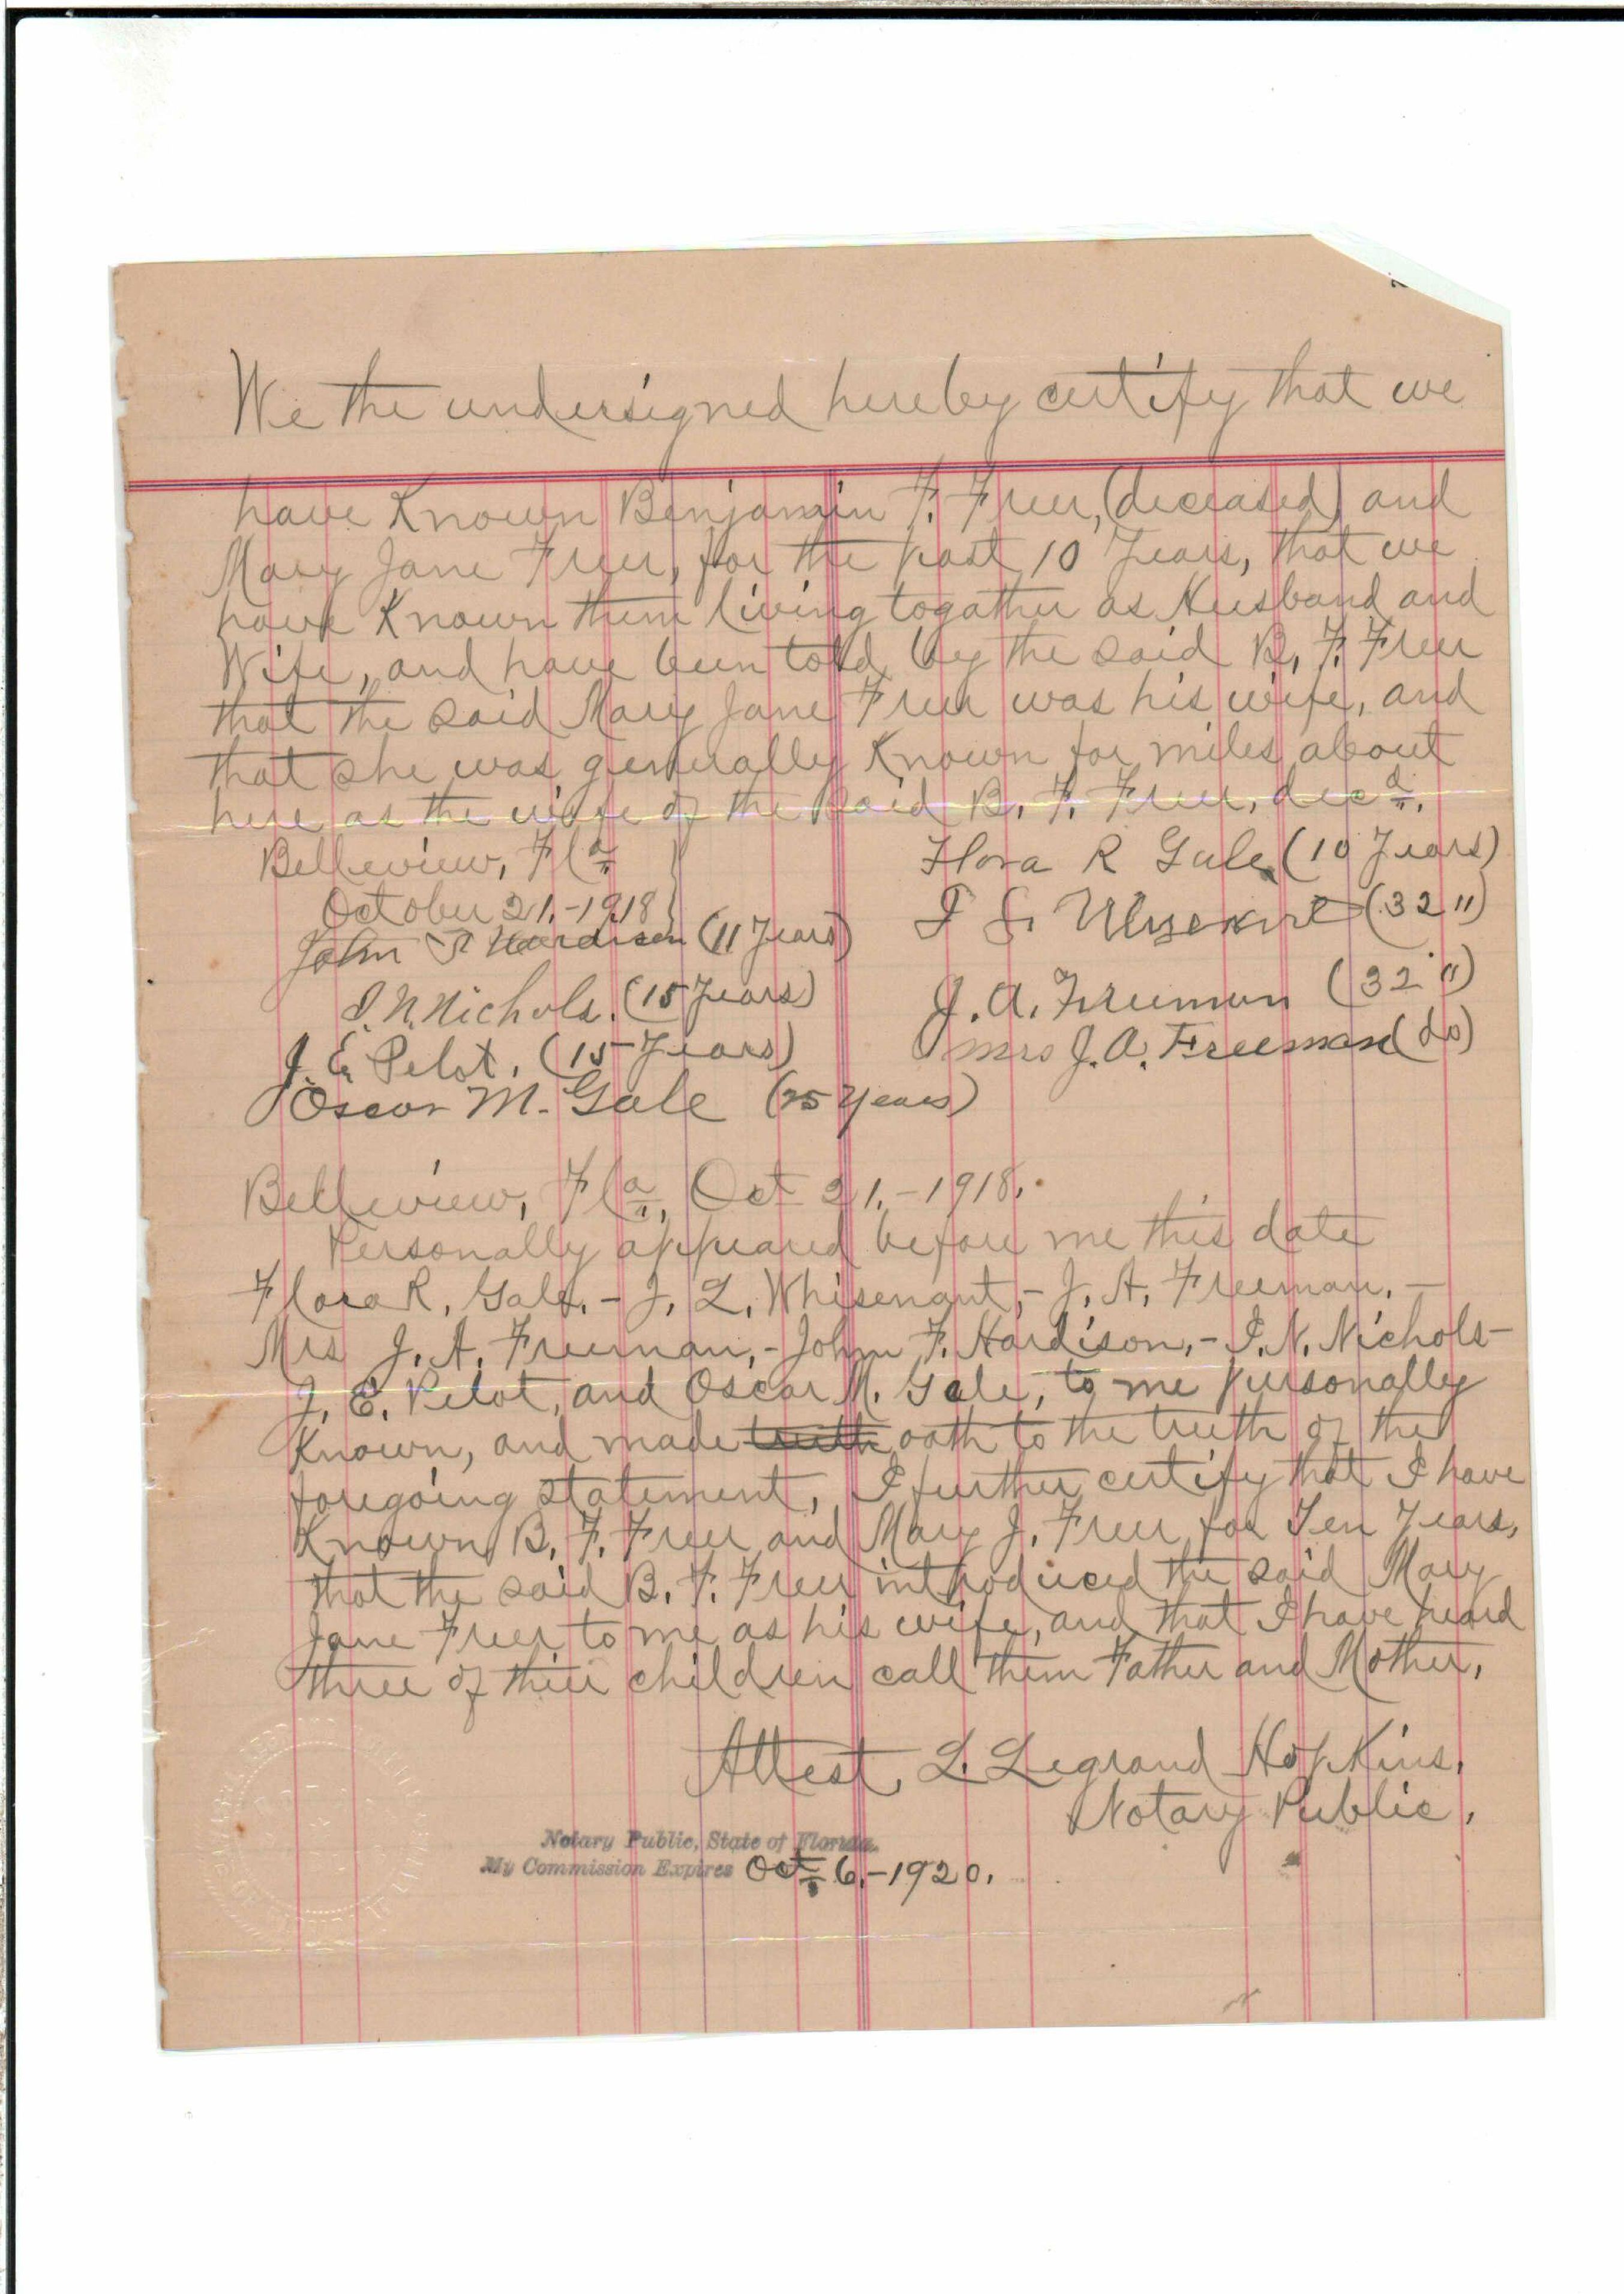 We the undersigned hereby certify that we
have Known Benjamin F. Freer, (deceased) and
Mary Jane Freer, for the past 10 Years, that we
have Known them living togather as Husband and
Wife, and have been told by the said B. F. Freer
that the said Mary Jane Freer was his wife, and
that she was generally Known for miles about
here as the wife of the said B. F. Freer, decd.
Belleview, Fla
October 21,-1918
Flora R Gale (10 Years)
(32 ")
John F Hardison (11 Years)
I. N. Nichols. (15 Years)
J. A. Freeman (32 ")
J. E. Pelot. (15 Years)
Mrs J. A. Freeman (do)
Oscar M. Gale (25 years)
Belleview, Fla, Oct 21.-1918.
Personally appeared before me this date
Flora R. Gale.- J. L. Whisenant,- J. A. Freeman.-
Mrs J. A. Freeman,- John F. Hardison,- I. N. Nichols-
J. E. Pelot, and Oscar M. Gale, to me personally
Known, and made truth oath to the truth of the
foregoing statement, I further certify that I have
Known B. F. Freer and Mary J. Freer for Ten Years,
that the said B. F. Freer introduced the said Mary
Jane Freer to me as his wife, and that I have heard
three of thier children call them Father and Mother.
Attest, L. Legrand Hopkins.
Notary Public.
Notary Public, State of Florida.
My Commission Expires Oct 6.-1920.